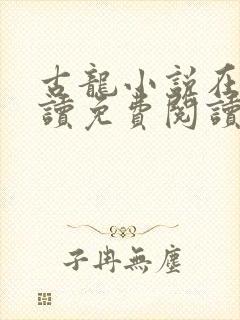 古龍小説在
讀免費閱讀
子冉無塵